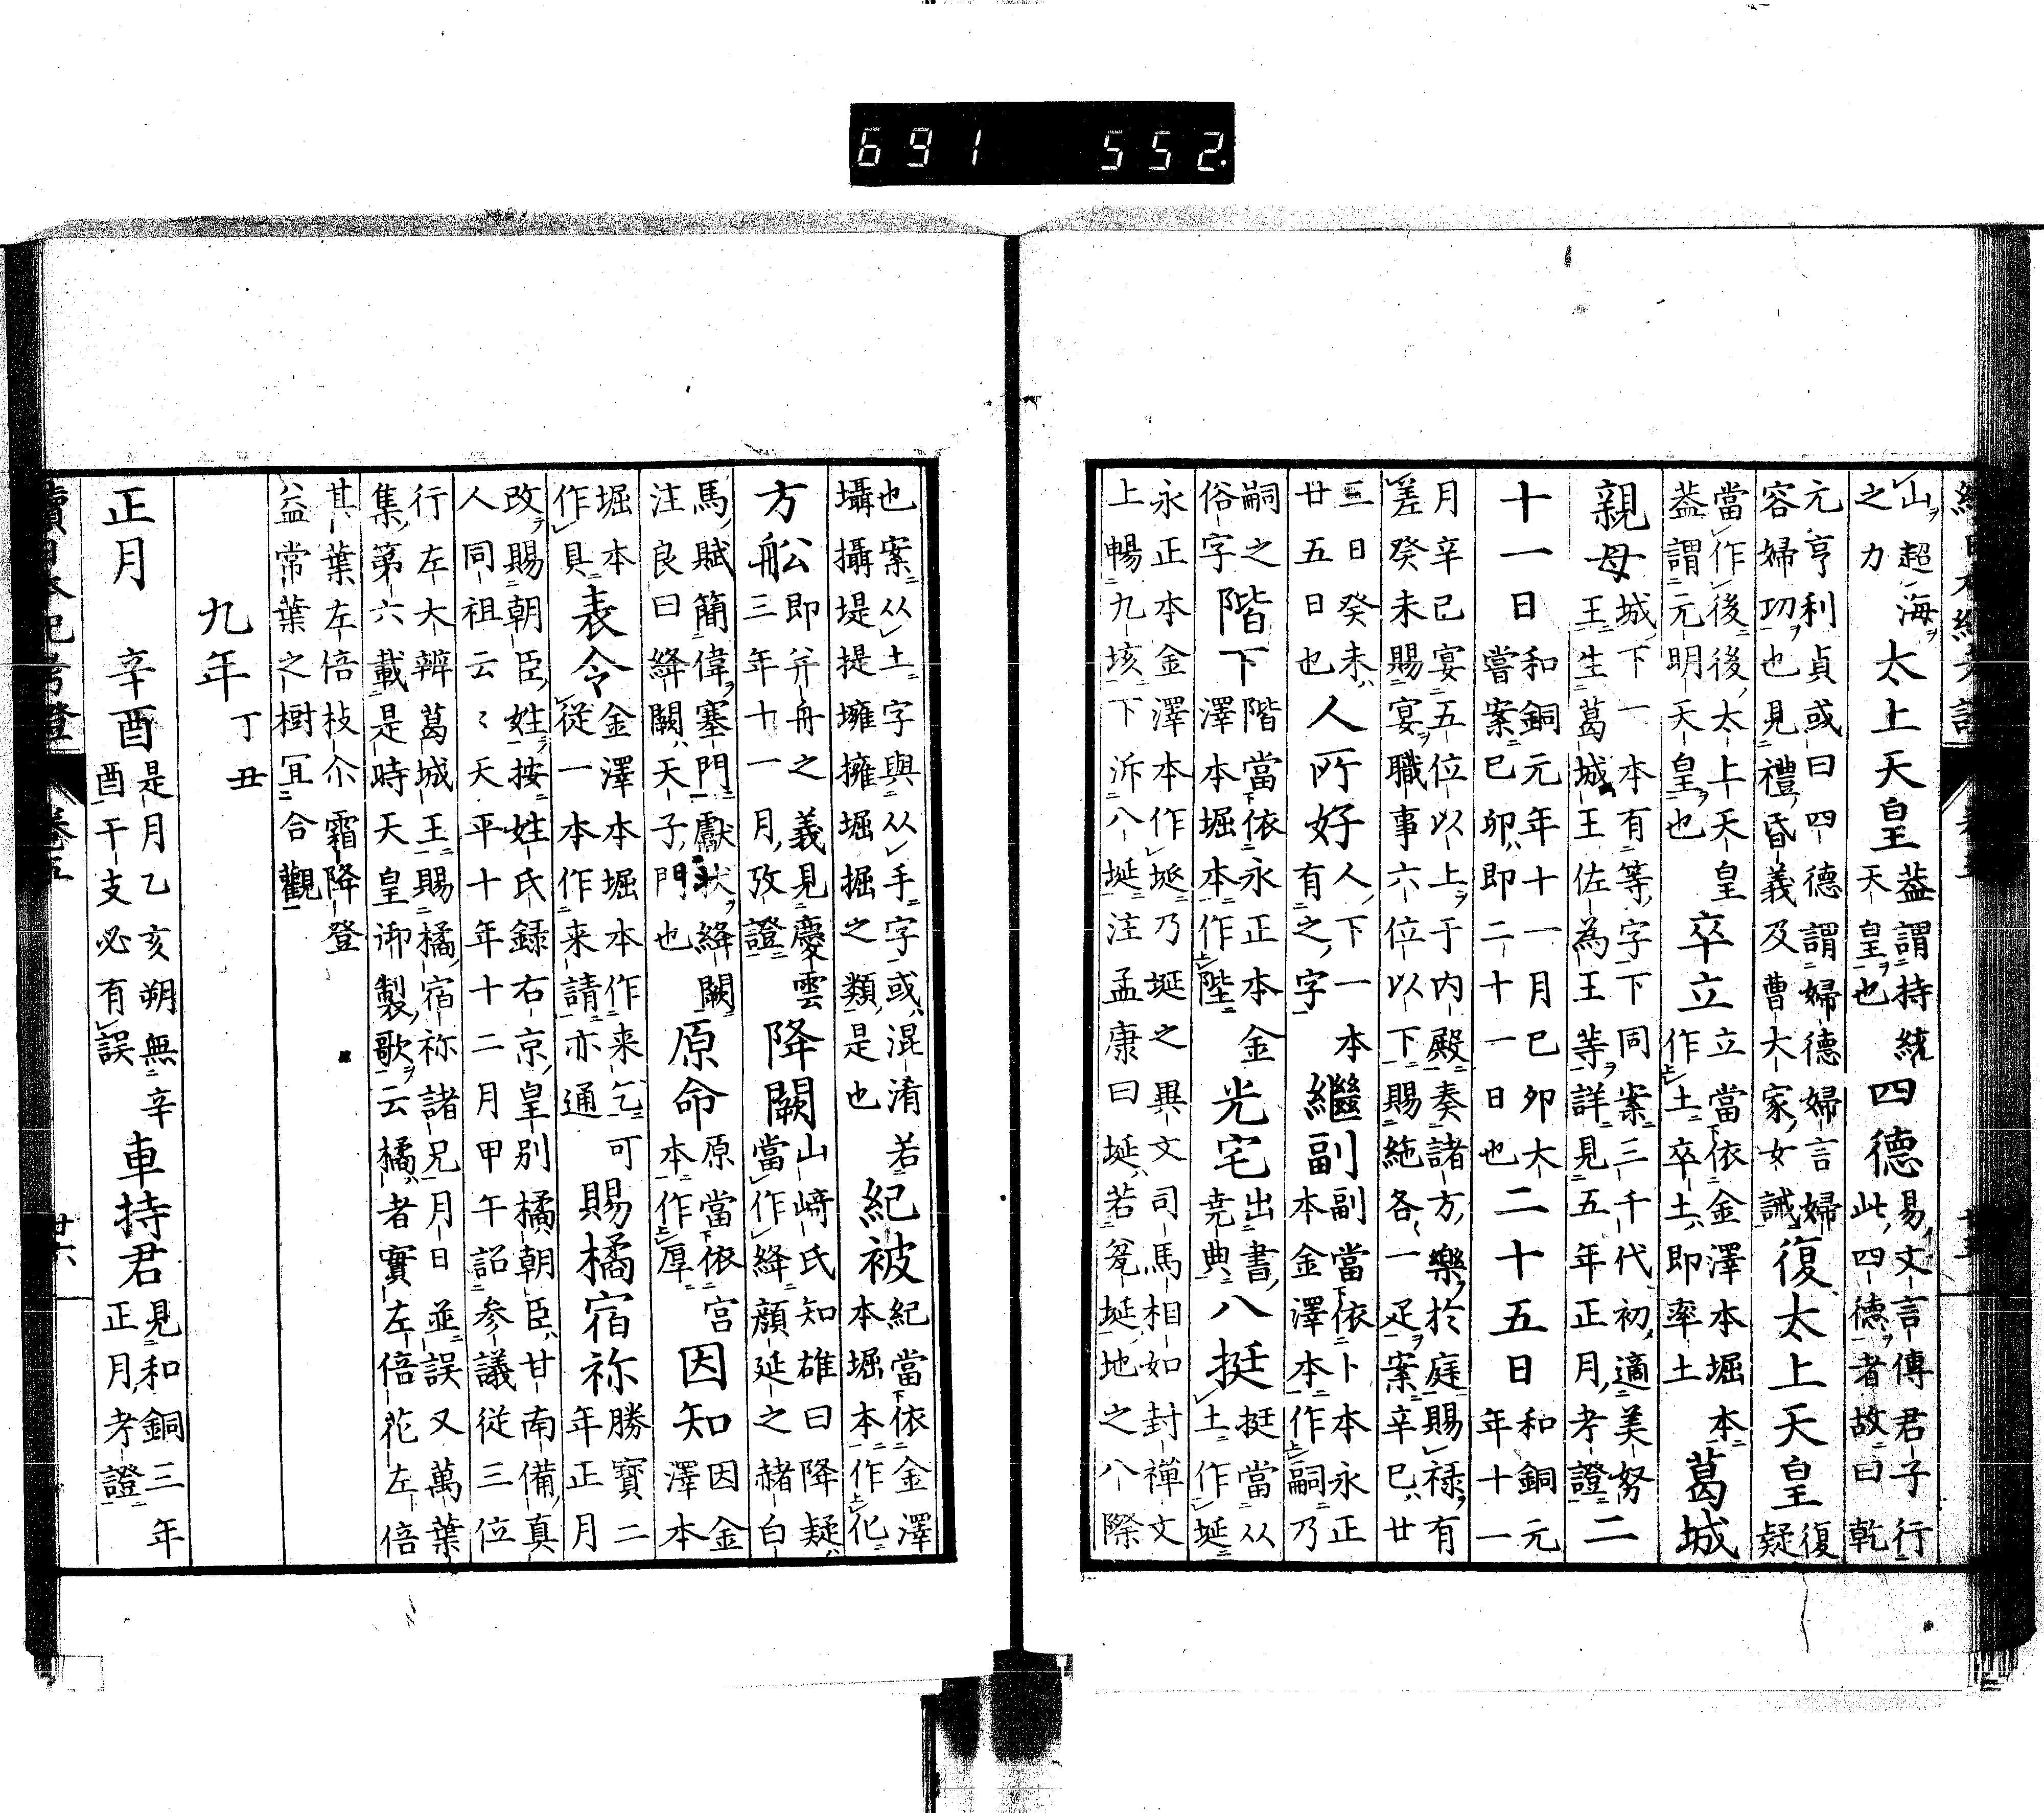 691 552.
山超海之力 太上天皇 葢謂持統天皇也 四德 易文言傳君子行此四德者故曰乾
元亨利貞或曰四德謂婦德婦言婦容婦功也見禮昏義及曹大家女誡 復太上天皇 復疑
當作後後太上天皇葢謂元明天皇也 卒立 立當依金澤本堀本作土卒土即率土 葛城
親母王 城下一本有等字下同案三千代初適美努王生葛城王佐為王等詳見五年正月考證 二
十一日 和銅元年十一月己卯大嘗案己卯即二十一日也 二十五日 和銅元年十一
月辛己宴五位以上于内殿奏諸方樂於庭賜禄有差癸未賜宴職事六位以下賜絁各一疋案辛巳廿
三日癸未廿五日也 人所好 人下一本有之字 繼副 副當依卜本永正本金澤本作嗣乃
嗣之俗字 階下 階當依永正本金澤本堀本作陛 光宅 出書堯典 八挺 挺當从土作埏
永正本金澤本作埏乃埏之異文司馬相如封禪文上暢九垓下泝八埏注孟康曰埏若瓮埏地之八際
也案从土字與从手字或混淆若壩攝堤提壅擁堀掘之類是也 紀被 紀當依金澤本堀本作化
方舩 即并舟之義見慶雲三年十一月攷證 降闕 山﨑氏知雄曰降疑當作絳顔延之赭白
馬賦簡偉塞門獻狀絳闕注良曰絳闕天子門也 原命 原當依宮本作厚 因知 因金澤本
堀本作具 表令 金澤本堀本作来乞可從一本作来請亦通 賜橘宿祢 勝寶二年正月
改賜朝臣姓按姓氏録右京皇別橘朝臣甘南備真人同祖云〻天平十年十二月甲午詔参議従三位
行左大辨葛城王賜橘宿祢諸兄月日並誤又萬葉集第六載是時天皇御製歌云橘者實左倍花左倍
其葉左倍枝尒霜降登益常葉之樹冝合觀
九年 丁丑
正月 辛酉 是月乙亥朔無辛酉干支必有誤 車持君 見和銅三年正月考證
續日本紀考證 卷五 廿六